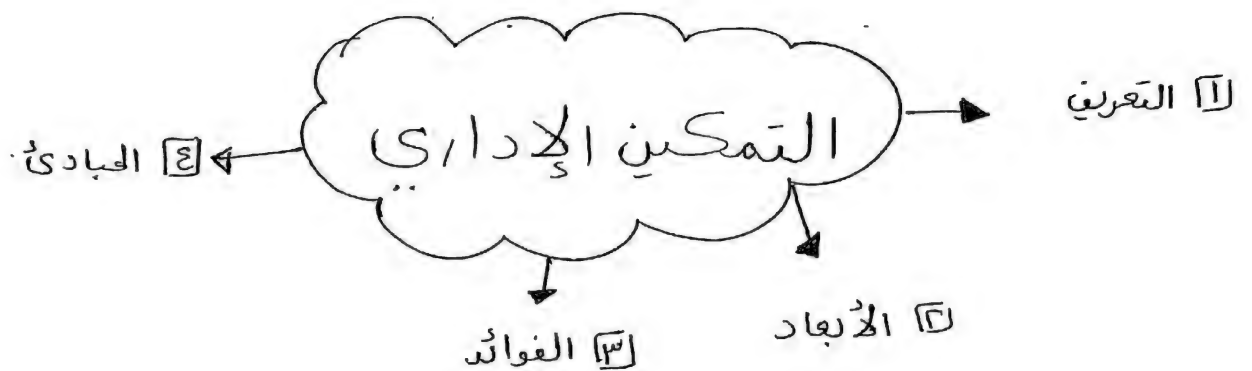 التمكين الإداري
١ التعريف
٢ الأبعاد
٣ الفوائد
٤ المبادئ